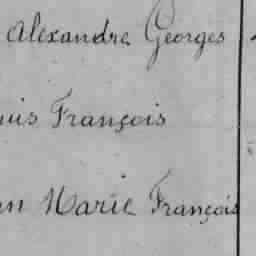 Alexandre Georges
uis François
n Marie François